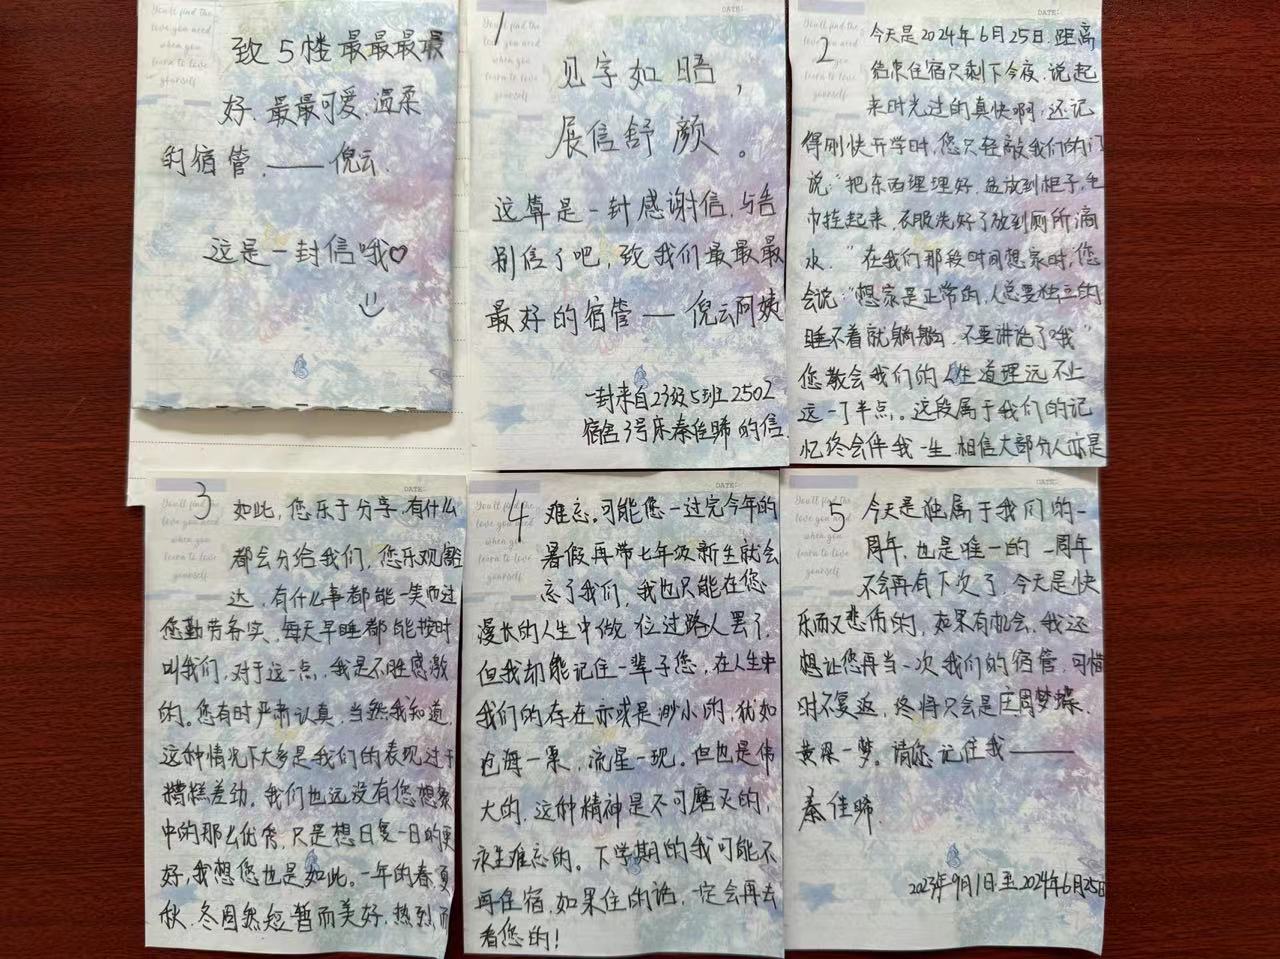 You'll find the
love you need
when you
learn to love
yourself
致5楼最最最最
好、最最可爱、温柔
的宿管.——倪云.
这是一封信哦♡
1
见字如晤，
展信舒颜。
这算是一封感谢信，与告
别信了吧，致我们最最最
最好的宿管—倪云阿姨
一封来自23级5班2502
宿舍3号床秦佳晞的信.
DATE:
You'll find the
love you need
when you
learn to love
yourself
2
今天是2024年6月25日.距离
结束住宿只剩下今夜，说起
来时光过的真快啊，还记
得刚快开学时，您只轻敲我们的门
说："把东西理理好，盆放到柜子，毛
巾挂起来，衣服洗好了放到厕所滴
水."在我们那段时间想家时，您
会说："想家是正常的，人总要独立的
睡不着就躺躺，不要讲话了哦"
您教会我们的人生道理远不止
这一丁半点。这段属于我们的记
忆终会伴我一生，相信大部分人亦是
DATE:
You'll find the
love you need
when you
learn to love
yourself
3
如此，您乐于分享，有什么
都会分给我们，您乐观豁
达，有什么事都能一笑而过
您勤劳务实，每天早睡都能按时
叫我们，对于这一点，我是不胜感激
的。您有时严肃认真，当然我知道，
这种情况下大多是我们的表现过于
糟糕差劲。我们也远没有您想象
中的那么优秀，只是想日复一日的更
好，我想您也是如此。一年的春、夏
秋、冬固然短暂而美好，热烈而
DATE:
You'll find the
love you need
when you
learn to love
yourself
4
难忘。可能您一过完今年的
暑假再带七年级新生就会
忘了我们，我也只能在您
漫长的人生中做一位过路人罢了.
但我却能记住一辈子您，在人生中
我们的存在亦或是渺小的，犹如
沧海一粟，流星一现。但也是伟
大的，这种精神是不可磨灭的，
永生难忘的。下学期的我可能不
再住宿，如果住的话，一定会再去
看您的！
DATE:
You'll find the
love you need
when you
learn to love
yourself
5
今天是独属于我们的一
周年，也是唯一的一周年
不会再有下次了，今天是快
乐而又悲伤的，如果有机会，我还
想让您再当一次我们的宿管，可惜
时不复返，终将只会是庄周梦蝶，
黄粱一梦。请您记住我——
秦佳晞.
2023年9月1日至2024年6月25日